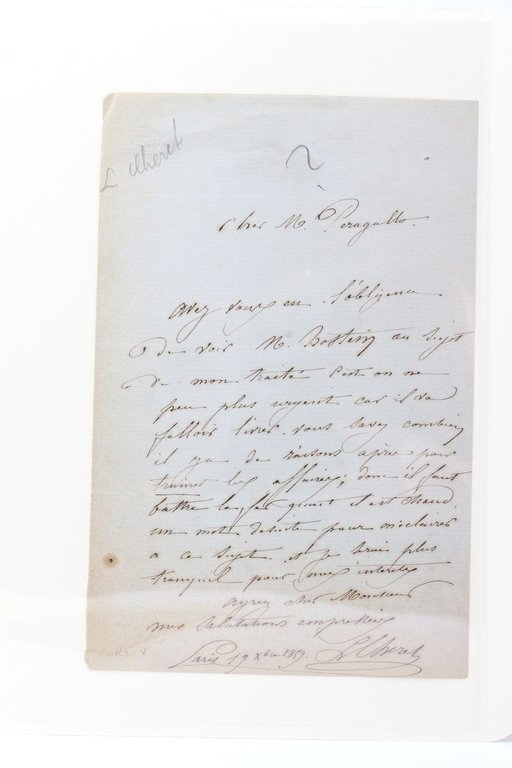 L Lheret
?
cher M. Peragallo.
avez vous eu l'obligence
de voir M. au sujet
de mon traité c'est on ne
peu plus urgent car il va
falloir livrer. vous savez combien
il y a de raisons après pour
trainer les affaires; donc il faut
battre le fer quant il est chaud.
un mot decrite pour m'eclairer
a ce sujet et je serai plus
tranquil pour mes interets
agrez cher Monsieur
mes salutations empressées
Paris 19 xbre 1859. L Lheret